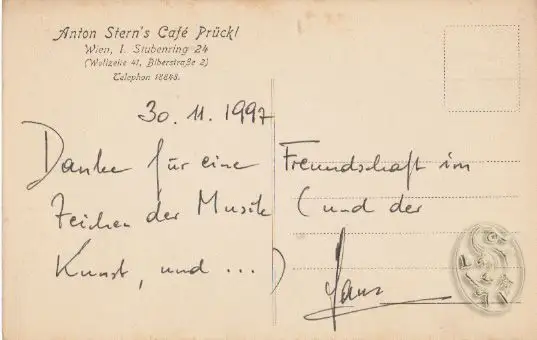 Anton Stern's Café Prückl
Wien, I. Stubenring 24
(Wollzeile 41, Biberstraße 2)
Telephon 18848.
30. 11. 1997
Danke für eine Freundschaft im
Zeichen der Musik (und der
Kunst, und ...)
Hans